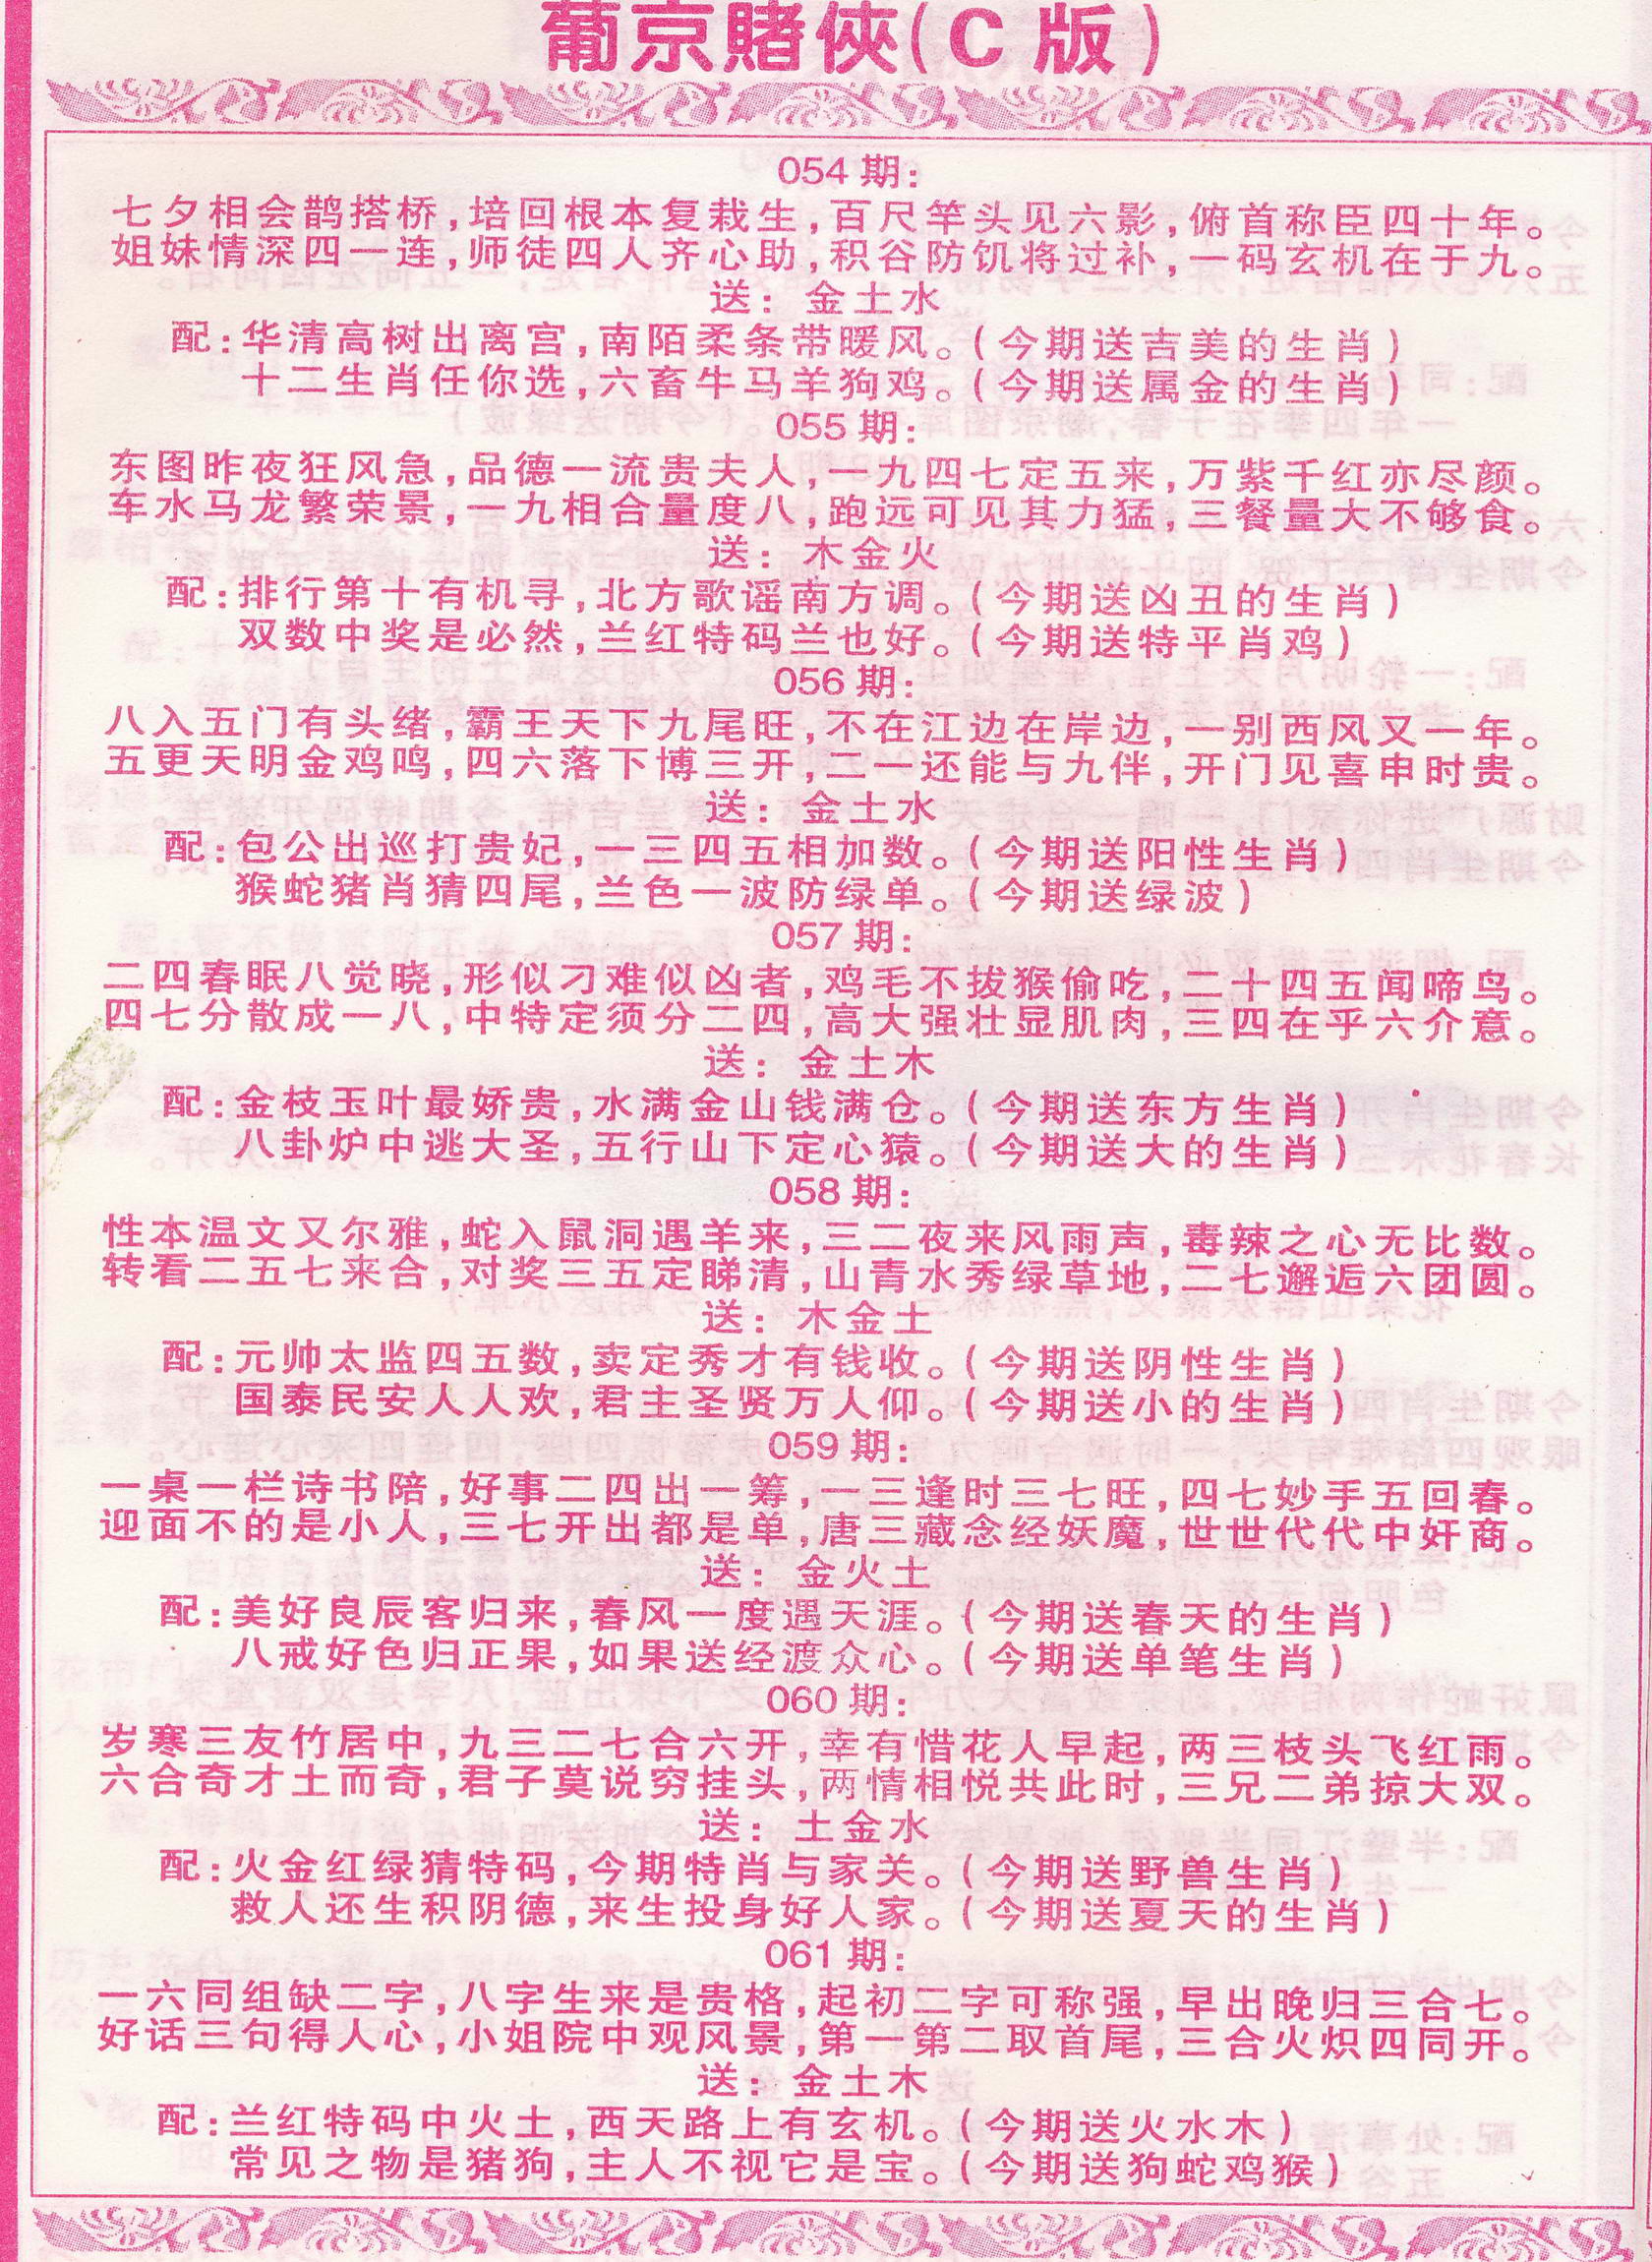 葡京賭俠(C版)
054期:
七夕相会鹊搭桥,培回根本复栽生,百尺竿头见六影,俯首称臣四十年。
姐妹情深四一连,师徒四人齐心助,积谷防饥将过补,一码玄机在于九。
送: 金土水
配:华清高树出离宫,南陌柔条带暖风。(今期送吉美的生肖)
十二生肖任你选,六畜牛马羊狗鸡。(今期送属金的生肖)
055期:
东图昨夜狂风急,品德一流贵夫人,一九四七定五来,万紫千红亦尽颜。
车水马龙繁荣景,一九相合量度八,跑远可见其力猛,三餐量大不够食。
送: 木金火
配:排行第十有机寻,北方歌谣南方调。(今期送凶丑的生肖)
双数中奖是必然,兰红特码兰也好。(今期送特平肖鸡)
056期:
八入五门有头绪,霸王天下九尾旺,不在江边在岸边,一别西风又一年。
五更天明金鸡鸣,四六落下博三开,二一还能与九伴,开门见喜申时贵。
送: 金土水
配:包公出巡打贵妃,一三四五相加数。(今期送阳性生肖)
猴蛇猪肖猜四尾,兰色一波防绿单。(今期送绿波)
057期:
二四春眠八觉晓,形似刁难似凶者,鸡毛不拔猴偷吃,二十四五闻啼鸟。
四七分散成一八,中特定须分二四,高大强壮显肌肉,三四在乎六介意。
送: 金土木
配:金枝玉叶最娇贵,水满金山钱满仓。(今期送东方生肖)
八卦炉中逃大圣,五行山下定心猿。(今期送大的生肖)
058期:
性本温文又尔雅,蛇入鼠洞遇羊来,三二夜来风雨声,毒辣之心无比数。
转看二五七来合,对奖三五定睇清,山青水秀绿草地,二七邂逅六团圆。
送: 木金土
配:元帅太监四五数,卖定秀才有钱收。(今期送阴性生肖)
国泰民安人人欢,君主圣贤万人仰。(今期送小的生肖)
059期:
一桌一栏诗书陪,好事二四出一筹,一三逢时三七旺,四七妙手五回春。
迎面不的是小人,三七开出都是单,唐三藏念经妖魔,世世代代中奸商。
送: 金火土
配:美好良辰客归来,春风一度遇天涯。(今期送春天的生肖)
八戒好色归正果,如果送经渡众心。(今期送单笔生肖)
060期:
岁寒三友竹居中,九三二七合六开,幸有惜花人早起,两三枝头飞红雨。
六合奇才土而奇,君子莫说穷挂头,两情相悦共此时,三兄二弟掠大双。
送: 土金水
配:火金红绿猜特码,今期特肖与家关。(今期送野兽生肖)
救人还生积阴德,来生投身好人家。(今期送夏天的生肖)
061期:
一六同组缺二字,八字生来是贵格,起初二字可称强,早出晚归三合七。
好话三句得人心,小姐院中观风景,第一第二取首尾,三合火炽四同开。
送: 金土木
配:兰红特码中火土,西天路上有玄机。(今期送火水木)
常见之物是猪狗,主人不视它是宝。(今期送狗蛇鸡猴)